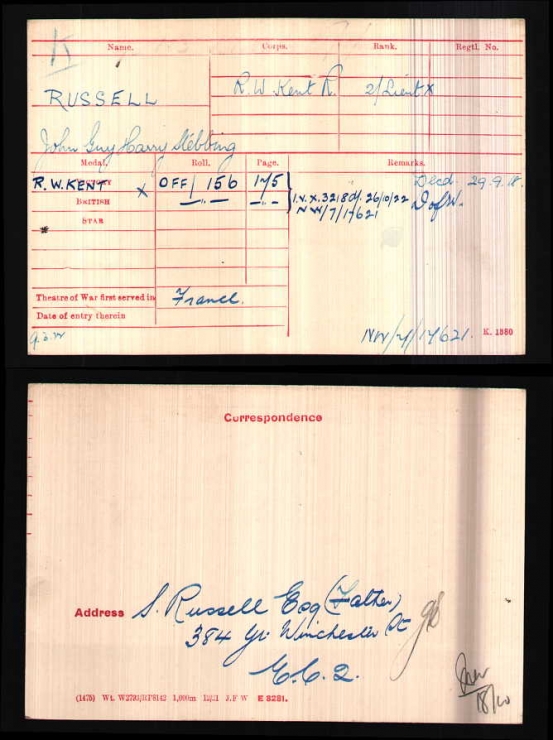 K
Name. Corps. Rank. Regtl. No.
RUSSELL R. W. Kent R. 2/Lieut x
John Guy Harry Stebbing
Medal. Roll. Page. Remarks.
VICTORY
R.W.KENT x OFF/ 156 175 Decd. 29.9.18.
BRITISH —„— —„— I.V.X.3218 26/10/22 D of W.
NW/7/17621
STAR
*
Theatre of War first served in France.
Date of entry therein
NW/7/17621. K. 1380
Correspondence
Address S. Russell Esq (Father)
384 Gt. Winchester St
E.C.2.
18/10
(1475) Wt. 1,000m J.F W E 9281.